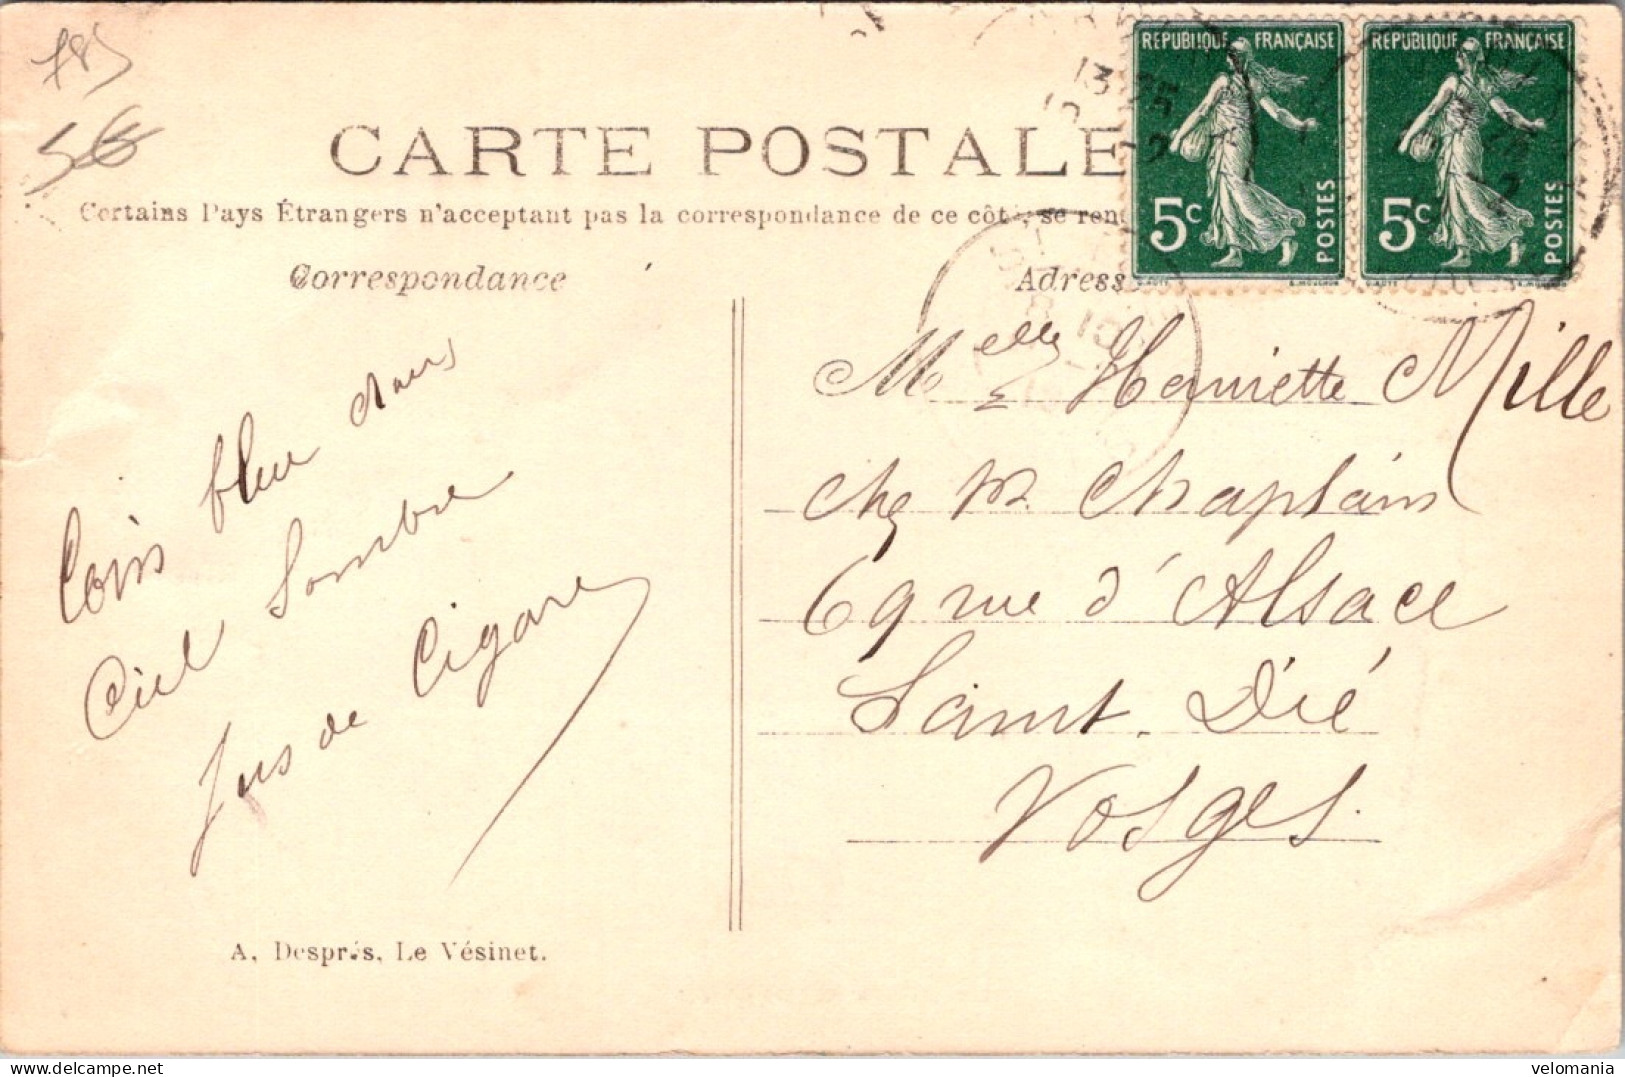 785
5€
CARTE POSTALE
Certains Pays Étrangers n'acceptant pas la correspondance de ce côt, se ren
Correspondance
Adress
REPUBLIQUE FRANÇAISE
5c
POSTES
REPUBLIQUE FRANÇAISE
5c
POSTES
Coin bleu dans
Ciel Sombre
Jus de Cigare
Melle Henriette Mille
chez M. Chaplain
69 rue d'Alsace
Saint. Dié
Vosges.
A. Després, Le Vésinet.
velomania